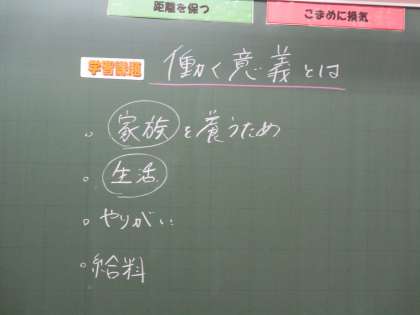 距離を保つ
こまめに換気
学習課題 働く意義とは
。家族を養うため
。生活
。やりがい
。給料